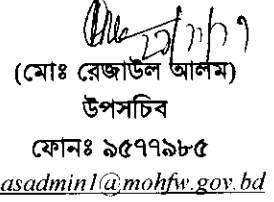 (মোঃ রেজাউল আলম)
উপসচিব
ফোনঃ ৯৫৭৭৯৮৫
asadmin1@mohfw.gov.bd